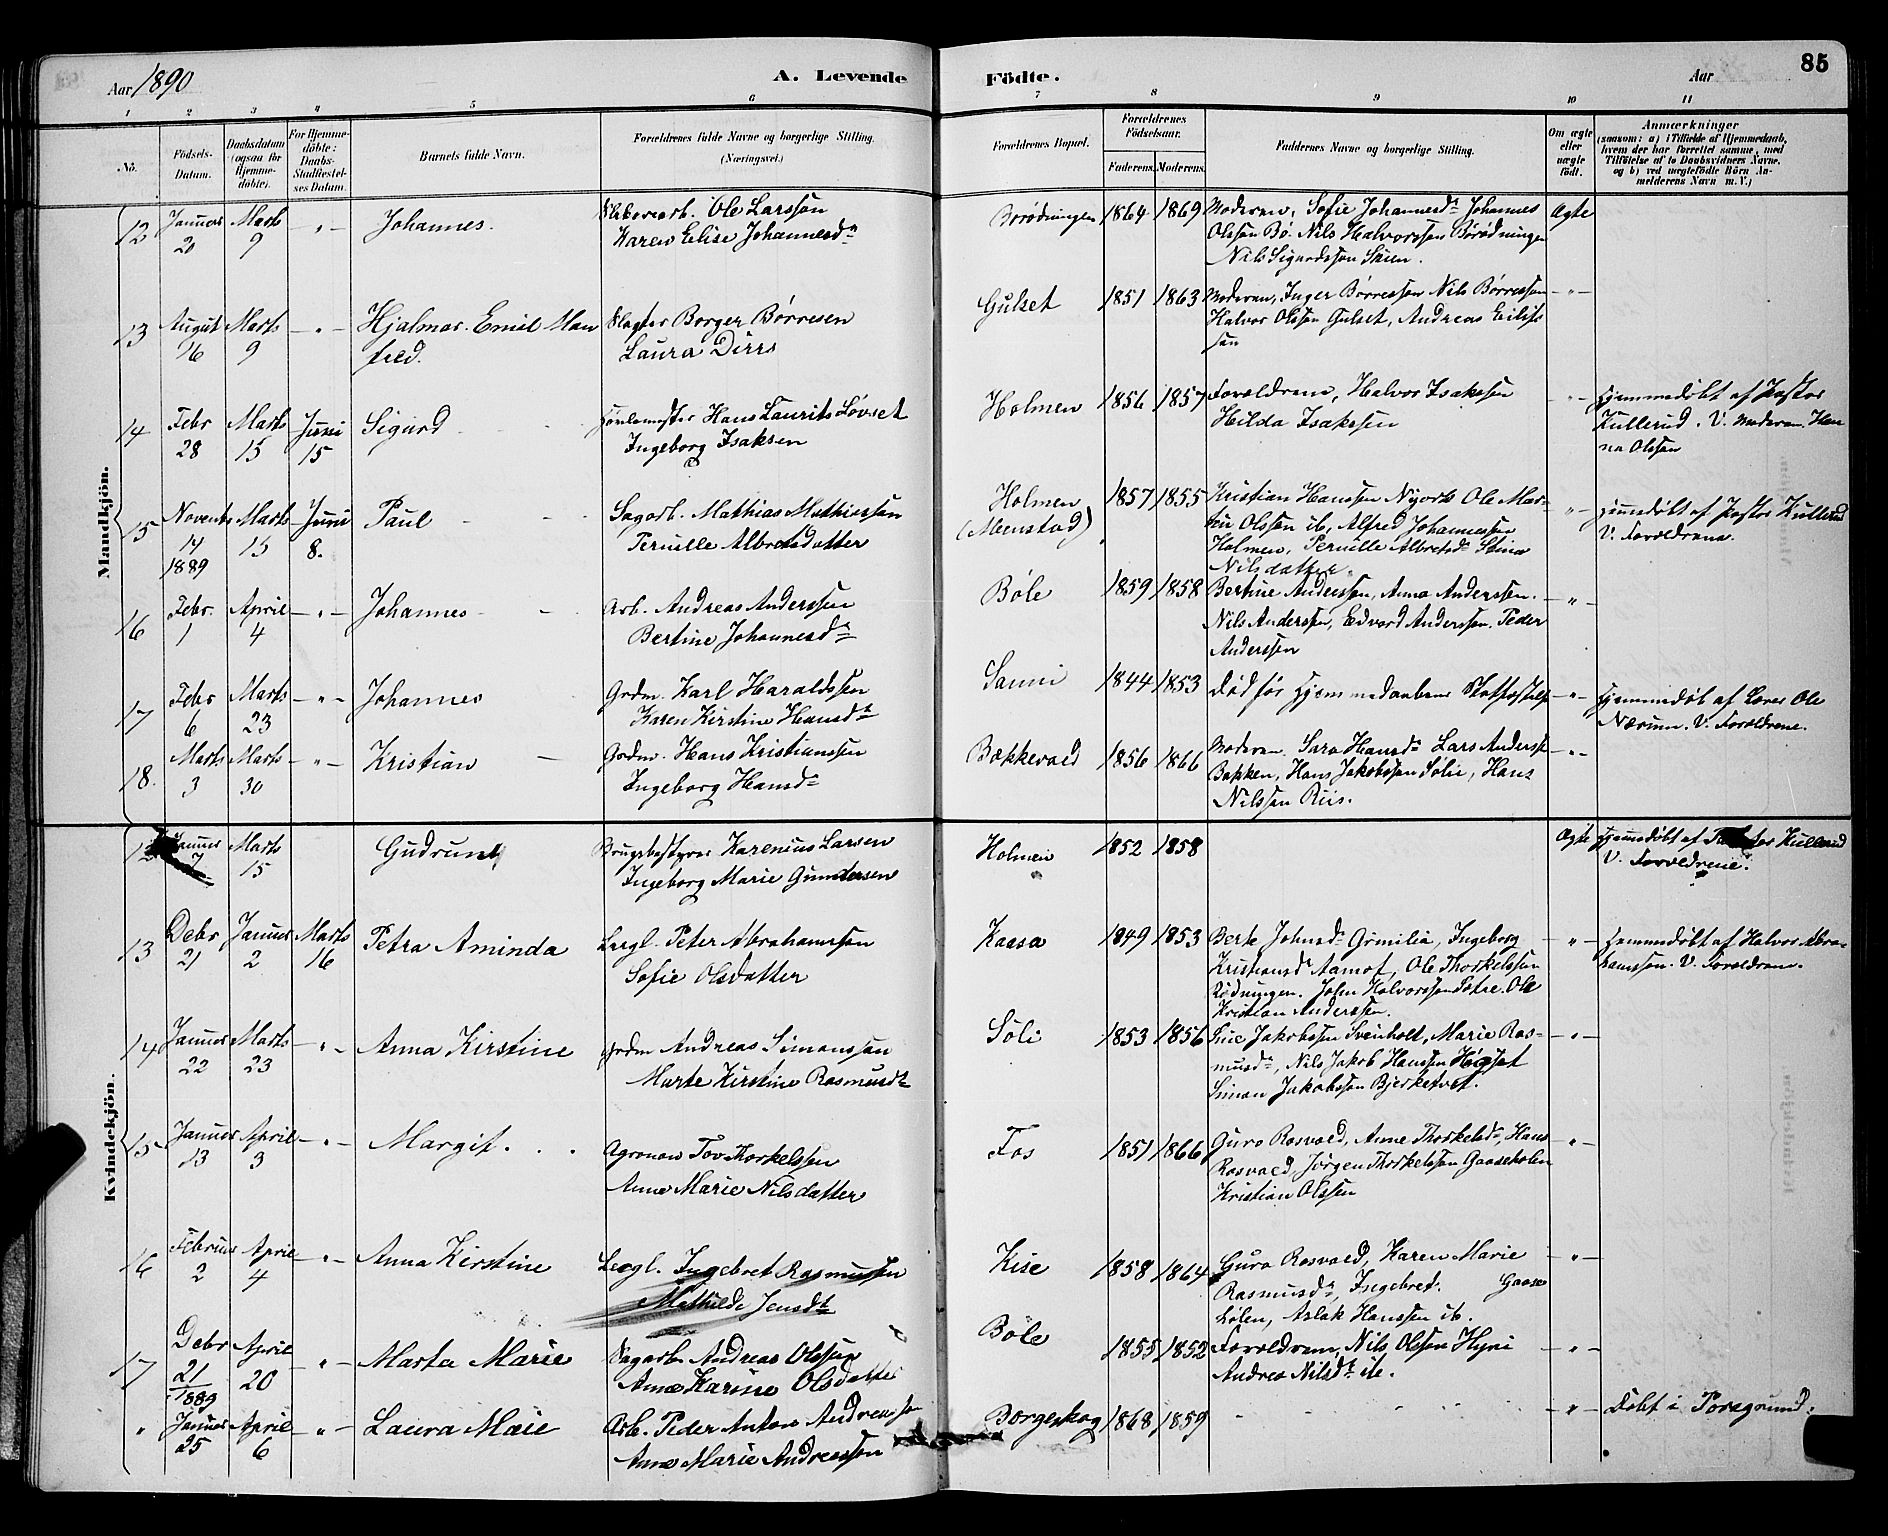 Aar 1890
A. Levende
Födte.
Aar
85
1 2 3 4 5 6 7 8 9 10 11
No.
Födsels-Datum.
Daabsdatum (ogsaa for Hjemme-döbte).
For Hjemme-döbte: Daabs-Stadfæstel-ses Datum.
Barnets fulde Navn.
Forældrenes fulde Navne og borgerlige Stilling. (Næringsvei.)
Forældrenes Bopæl.
Forældrenes Födselsaar.
Faderens. Moderens.
Faddernes Navne og borgerlige Stilling.
Om ægte eller uægte födt.
Anmærkninger (saasom: a) i Tilfælde af Hjemmedaab, hvem der har forrettet samme, med Tilföielse af to Daabsvidners Navne, og b) ved uægtefödte Börn An-melderens Navn m. V.)
Mandkjön.
12 Januar 20 Marts 9 - " - Johannes. Ole Larssön
Karen Elise Johannesdr
Borödningen 1864 1869 Moderen, Sofie Johannesdr Johannes
Olssön Bö. Nils Halvorssön Börödningen
Nils Sigurdssön Skien.
Ægte
13 August 16 Marts 9 - " - Hjalmar Emil Man
fred.
Slagter Borger Börresen
Laura Dirrs
Gulset 1851 1863 Moderen, Inger Börressön Nils Börressön
Halvor Olssön Gulset, Andreas Eilifs
sön
- " -
14 Febr 28 Marts 15 Juni 15 Sigurd
Hans Laurits Lövset
Ingeborg Isaksen
Holmen 1856 1857 Forældrene, Halvor Isaksen
Hilda Isaksen
- " - Hjemmedöbt af Pastor
Kullerud. V. Moderen. Han
na Olssön
15 Novembr 14 1889 Marts 15 Juni 8. Paul
Sagarb. Mathias Mathiessön
Pernille Albretsdatter
Holmen
(Menstad)
1857 1855 Kristian Hanssen Nyork Ole Mar-
tin Olssön ib, Alfred Johannessen
Holmen, Pernille Albretsdr Stina
Nilsdatter.
- " - Hjemmedöbt af Pastor Kullerud
V. Forældrene.
16 Febr. 1 April 4 - " - Johannes
Arb. Andreas Anderssön
Bertine Johannesdr
Böle 1859 1858 Bertine Anderssen, Anna Anderssen.
Nils Anderssen, Edvard Anderssen. Peder
Anderssen
- " -
17 Febr 6 Marts 23 - " - Johannes
Grdm. Karl Haraldssen
Karen Kirstine Hansdr
Sanni 1844 1853 Död för Hjemmedaabens Stadfæstelse
- " - Hjemmedöbt af Lærer Ole
Nærum. V. Forældrene.
18. Marts 3 Marts 30 - " - Kristian
Grdm. Hans Kristianssen
Ingeborg Hansdr
Bækkevold 1856 1866 Moderen. Sara Hansdr Lars Anderss
Bakken, Hans Jakobssen Sölie, Hans
Nilssen Riis.
- " -
Kvindekjön.
12 Januar 7 Marts 15 Gudrun
Brugsbestyrer Karenius Larsen
Ingeborg Marie Gundersen
Holmen 1852 1858
Ægte Hjemmedöbt af Pastor Kullerud
V. Forældrene.
13 Debr 21 Januar 2 Marts 16 Petra Aminda
Leigl. Peter Abrahamssön
Sofie Olsdatter
Kaasa 1849 1853 Berte Johnsdr Grinilia, Ingeborg
Kristiansdr Aamot, Ole Thorkelssen
Rödningen. John Halvorssen Sætre. Ole
Kristian Anderssen.
- " - Hjemmedöbt af Halvor Abra-
hamssen. V. Forældrene.
14 Januar 22 Marts 23 - " - Anna Kirstine
Grdm Andreas Simonssön
Marte Kirstine Rasmusdr
Söli 1853 1856 Jakobssen Sveinholt, Marie Ras-
musdr, Nils Jakob Hanssen Högset
Simon Jakobssen Bjerketvet.
- " -
15 Januar 23 April 3 - " - Margit.
Agronom Tov Thorkelssen
Anne Marie Nilsdatter
Fos 1851 1866 Guro Rosvold, Anne Thorkelsdr, Hans
Rosvold, Jörgen Thorkelssen Gaaseholen
Kristian Olssen
- " -
16 Februar 2 April 4 - " - Anna Kirstine
Leigl. Ingebret Rasmussen
Mathilde Jensdr
Kise 1858 1864 Guro Rosvold, Karen Marie
Rasmusdr, Ingebret. Gaase
holen, Aslak Hanssen ib.
- " -
17 Debr 21 1889 April 20 - " - Marta Marie
Sagarb. Andreas Olssön
Anne Karine Olsdatter
Böle 1855 1852 Forældrene, Nils Olssen Hyni
Andrea Nilsdr ib.
- " -
" Januar 25 April 6 - " - Laura Marie
Arb. Peder Anton Andreassön
Anne Marie Andreassön
Borgeskog 1868 1859
- " - Döbt i Porsgrund.